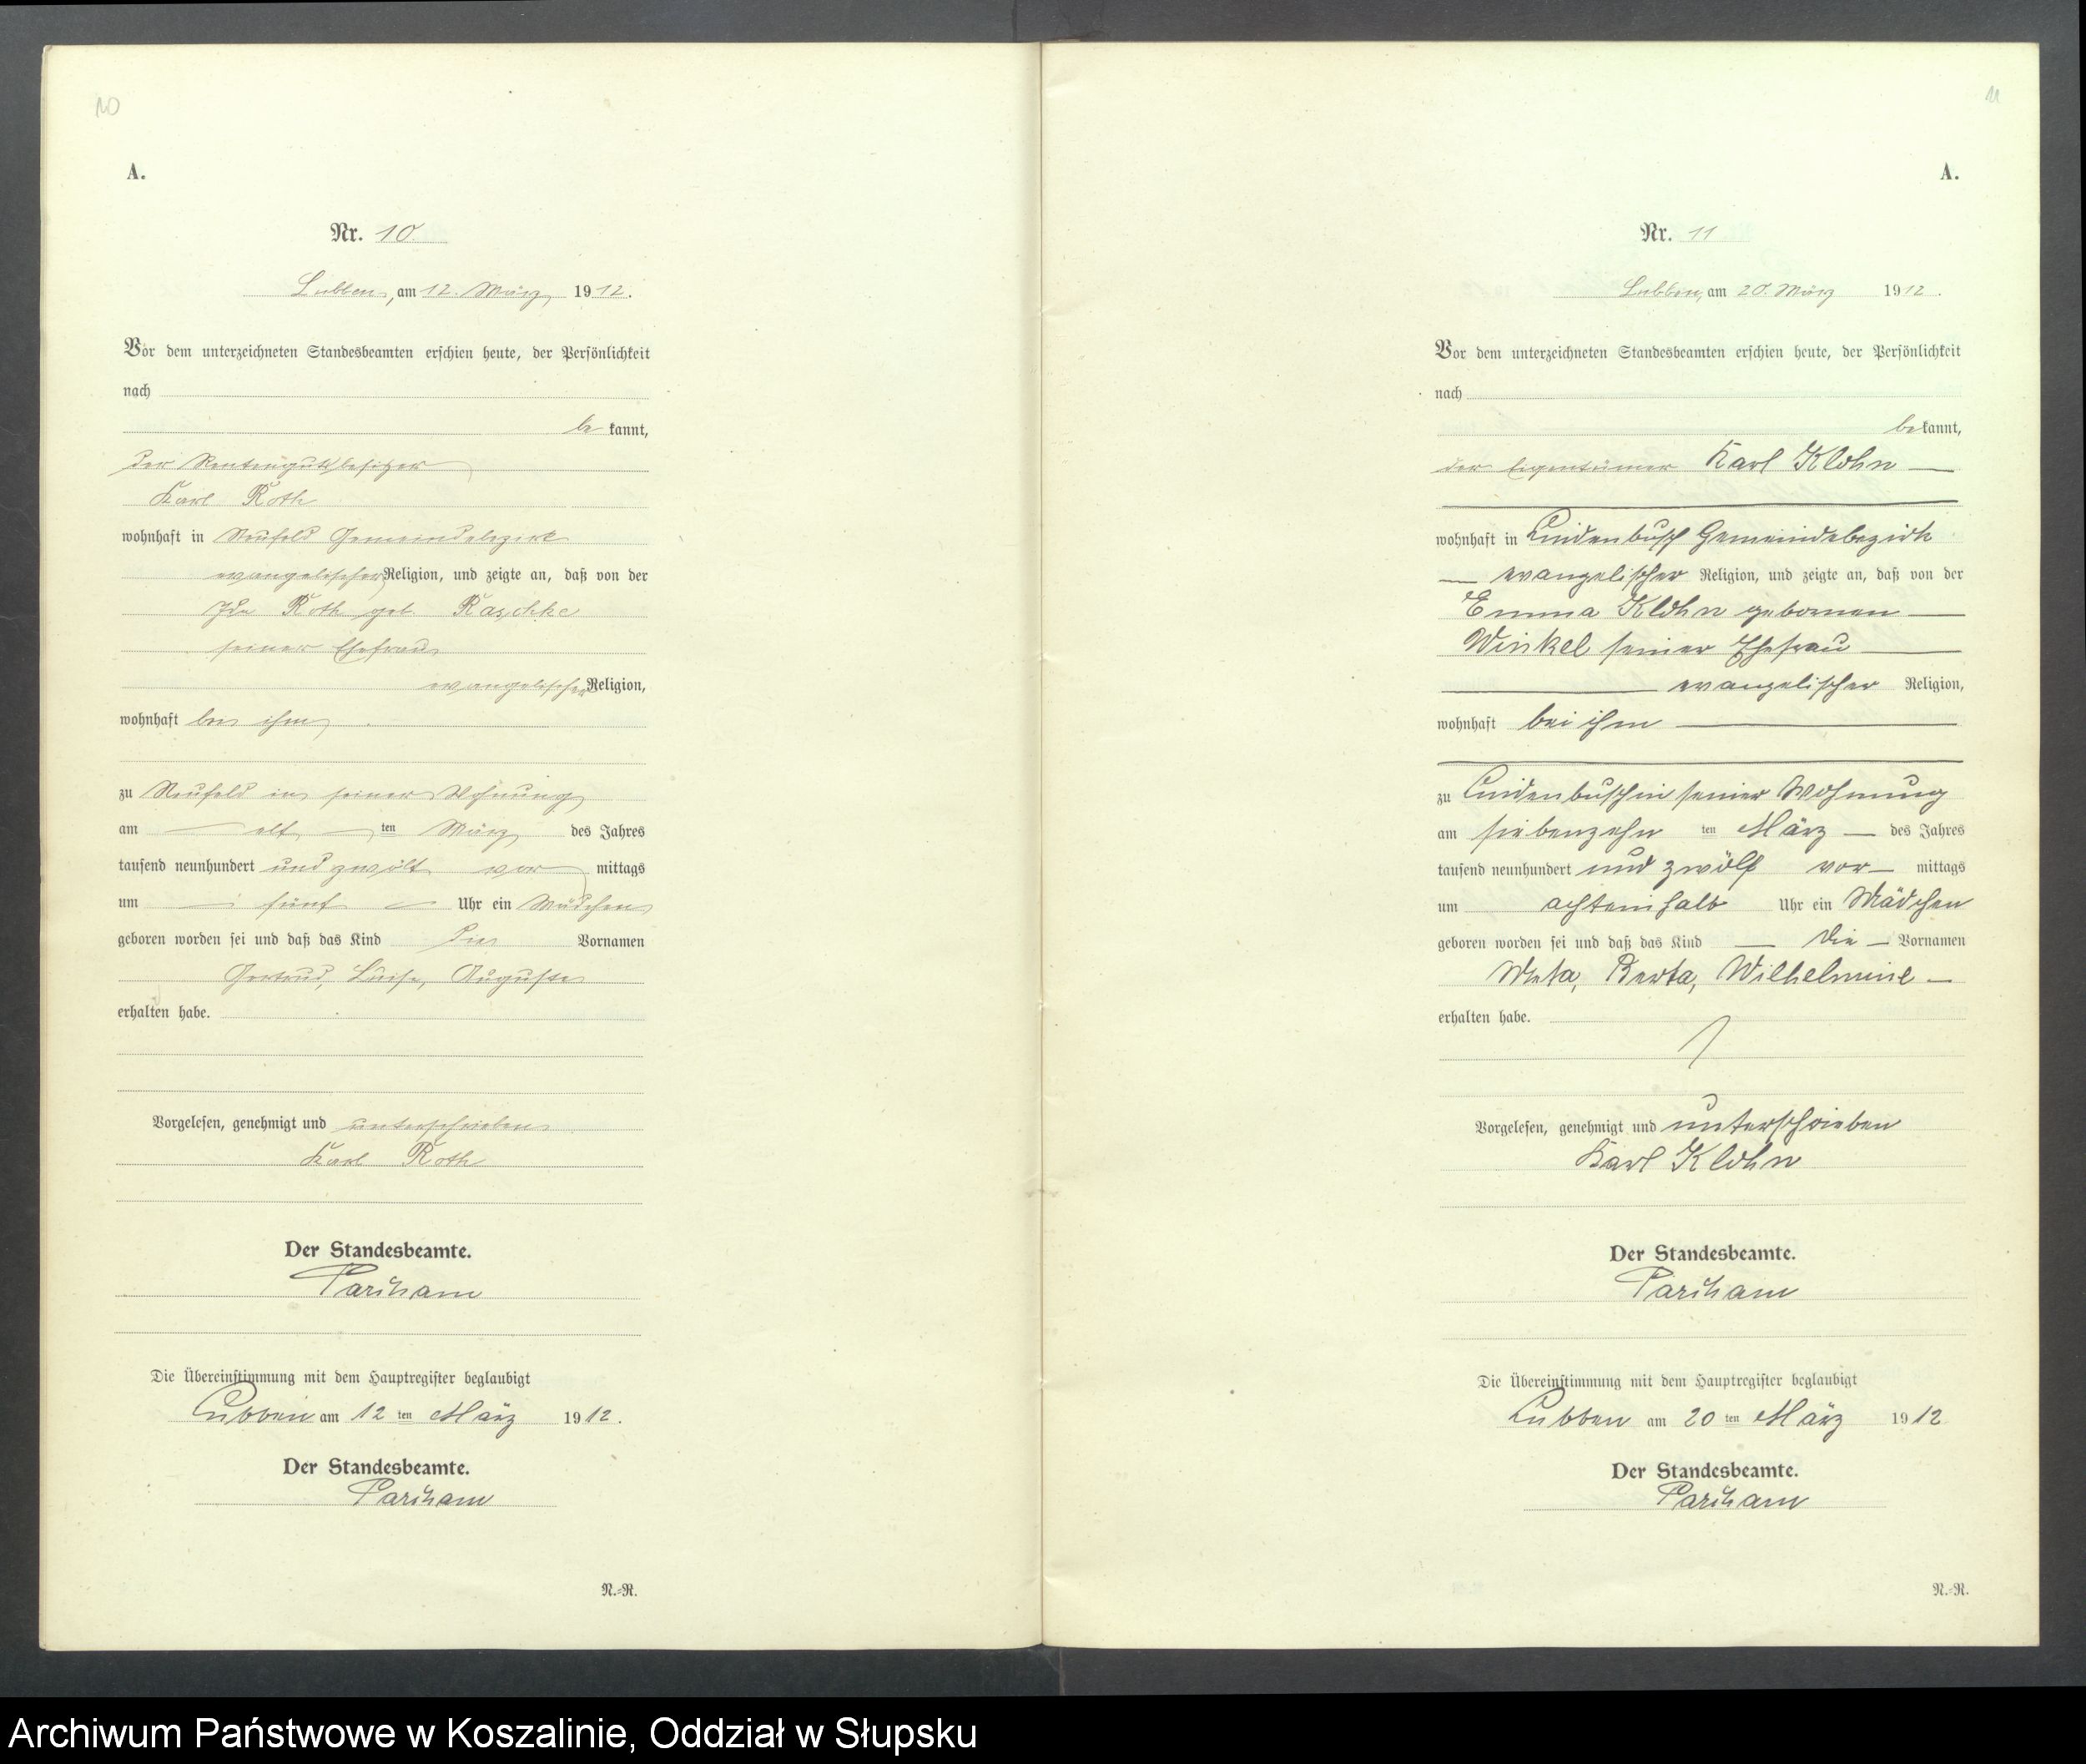 10
A.
Nr. 10
Lubben, am 12. März 1912.
Vor dem unterzeichneten Standesbeamten erschien heute, der Persönlichkeit
nach
be kannt,
der Rentengutsbesitzer
Karl Roth
wohnhaft in Neufeld Gemeindebezirk
evangelischer Religion, und zeigte an, daß von der
Ida Roth geb. Raschke
seiner Ehefrau
evangelischer Religion,
wohnhaft bei ihm
zu Neufeld in seiner Wohnung
am elf ten März des Jahres
tausend neunhundert und zwölf vor mittags
um fünf Uhr ein Mädchen
geboren worden sei und daß das Kind die Vornamen
Gertrud, Luise, Auguste
erhalten habe.
Vorgelesen, genehmigt und unterschrieben
Karl Roth
Der Standesbeamte.
Die Übereinstimmung mit dem Hauptregister beglaubigt
Lubben am 12 ten März 1912.
Der Standesbeamte.
N.-R.
11
A.
Nr. 11
Lubben, am 20. März 1912.
Vor dem unterzeichneten Standesbeamten erschien heute, der Persönlichkeit
nach
be kannt,
der Eigentümer Karl Klohn
wohnhaft in Lindenbusch Gemeindebezirk
evangelischer Religion, und zeigte an, daß von der
Emma Klohn geborenen
Winkel seiner Ehefrau
evangelischer Religion,
wohnhaft bei ihm
zu Lindenbusch in seiner Wohnung
am siebenzehn ten März des Jahres
tausend neunhundert und zwölf vor mittags
um achteinhalb Uhr ein Mädchen
geboren worden sei und daß das Kind die Vornamen
Meta, Berta, Wilhelmine
erhalten habe.
Vorgelesen, genehmigt und unterschrieben
Karl Klohn
Der Standesbeamte.
Die Übereinstimmung mit dem Hauptregister beglaubigt
Lubben am 20 ten März 1912
Der Standesbeamte.
N.-R.
Archiwum Państwowe w Koszalinie, Oddział w Słupsku